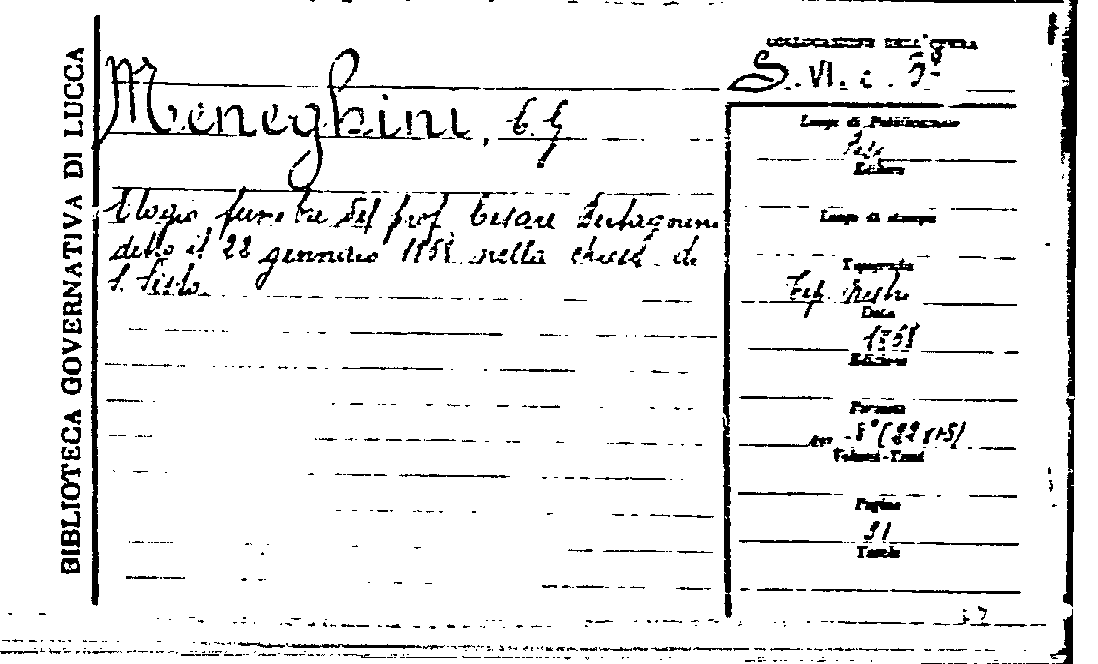 BIBLIOTECA GOVERNATIVA DI LUCCA
Meneghini, G. G.
Elogio funebre del prof. Cesare Bertagnini
detto il 22 gennaio 1858 nella chiesa di
S. Sisto
COLLOCAZIONE DELL'OPERA
S. VI. c.
Luogo di Pubblicazione
Pisa
Editore
Luogo di stampa
Tipografia
Tip. Nistri
Data
1858
Edizione
Formato
8° (22x15)
Volumi-Tomi
Pagine
31
Tavole